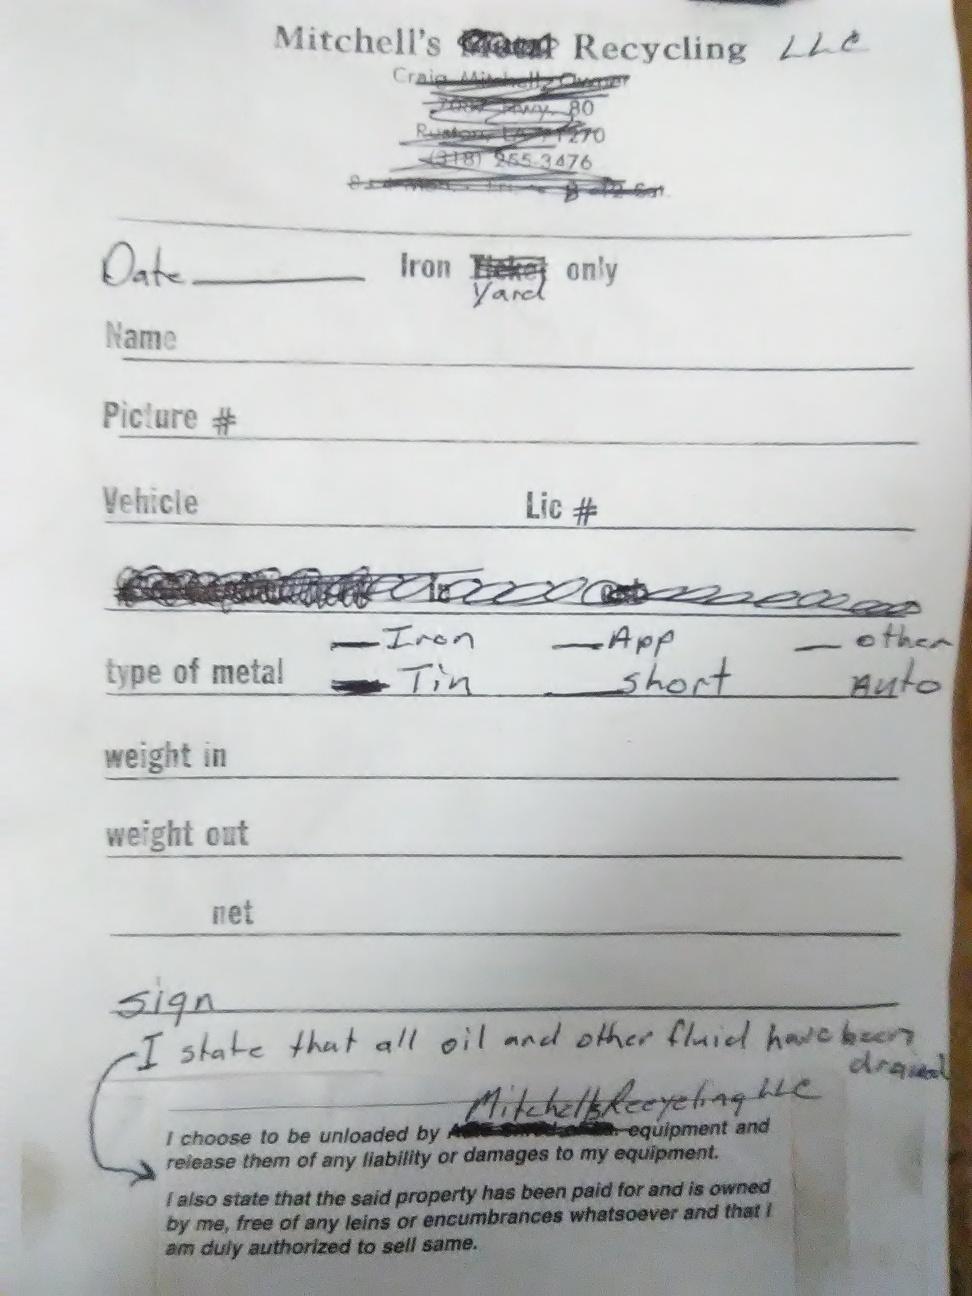 Mitchell's Recycling LLC
Craig Mitchell, Owner
Hwy. 80
Ruston, LA 71270
(318) 255-3476
Date
Iron Ticket only
Yard
Name
Picture #
Vehicle Lic #
In Out
Iron App other
type of metal Tin short Auto
weight in
weight out
net
sign
I state that all oil and other fluid have been
draned
Mitchell's Recycling LLC
I choose to be unloaded by equipment and
release them of any liability or damages to my equipment.
I also state that the said property has been paid for and is owned
by me, free of any leins or encumbrances whatsoever and that I
am duly authorized to sell same.